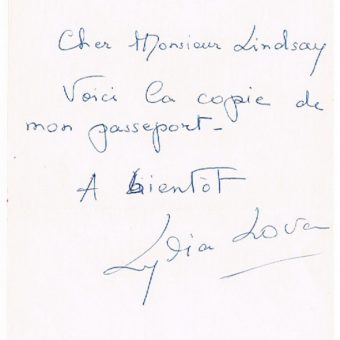 Cher Monsieur Lindsay
Voici la copie de
mon passeport-
A bientôt
Lydia Lova